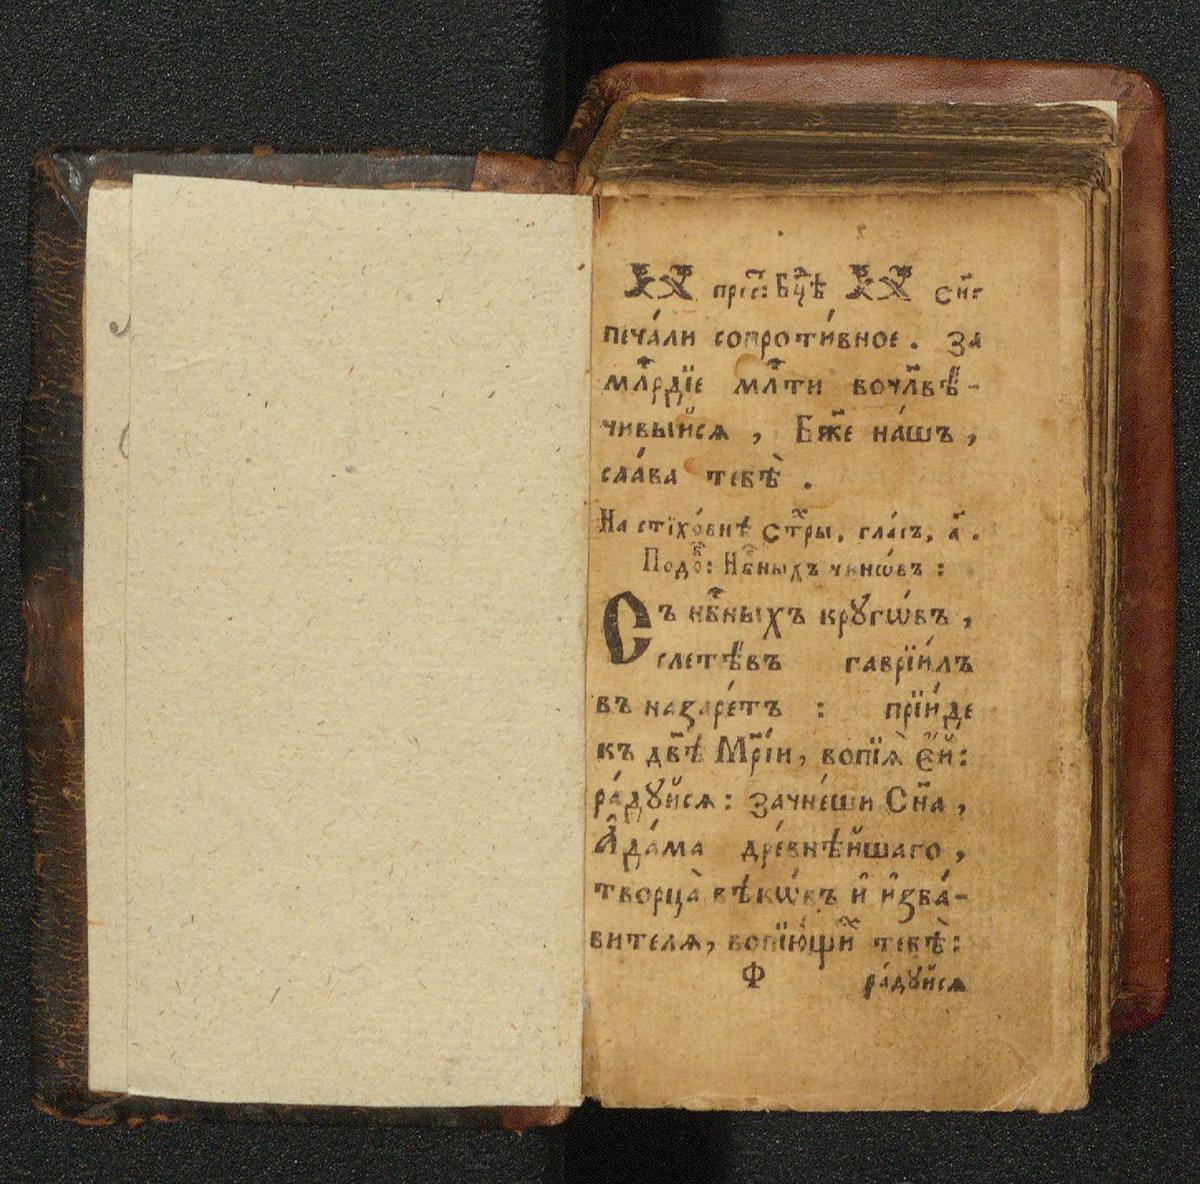 прес҃: Бц҃ѣ сн҃е
печа́ли сопроти́вное. за
млⷭ҇рдїе млⷭ҇ти вочл҃вѣ́-
чивыйсѧ, Бж҃е на́шъ,
сла́ва тебѣ̀.
На стїхо́внѣ стⷯры, гла́съ, а҃.
Подоⷠ҇: Нб҃ныхъ чинѡвъ:
Съ нб҃ныхъ крꙋгѡ́въ,
слетѣ́въ гаврїи́лъ
въ назаре́тъ: прїи́де
къ дв҃ѣ Мр҃і́и, вопїѧ̀ є҆́й:
ра́дꙋйсѧ: зачне́ши Сн҃а,
А҆да́ма дре́внѣйшаго,
творца̀ вѣкѡ́въ и҆ и҆зба́-
вителѧ, вопїю́щиⷯ тебѣ̀:
Ф ра́дꙋйсѧ